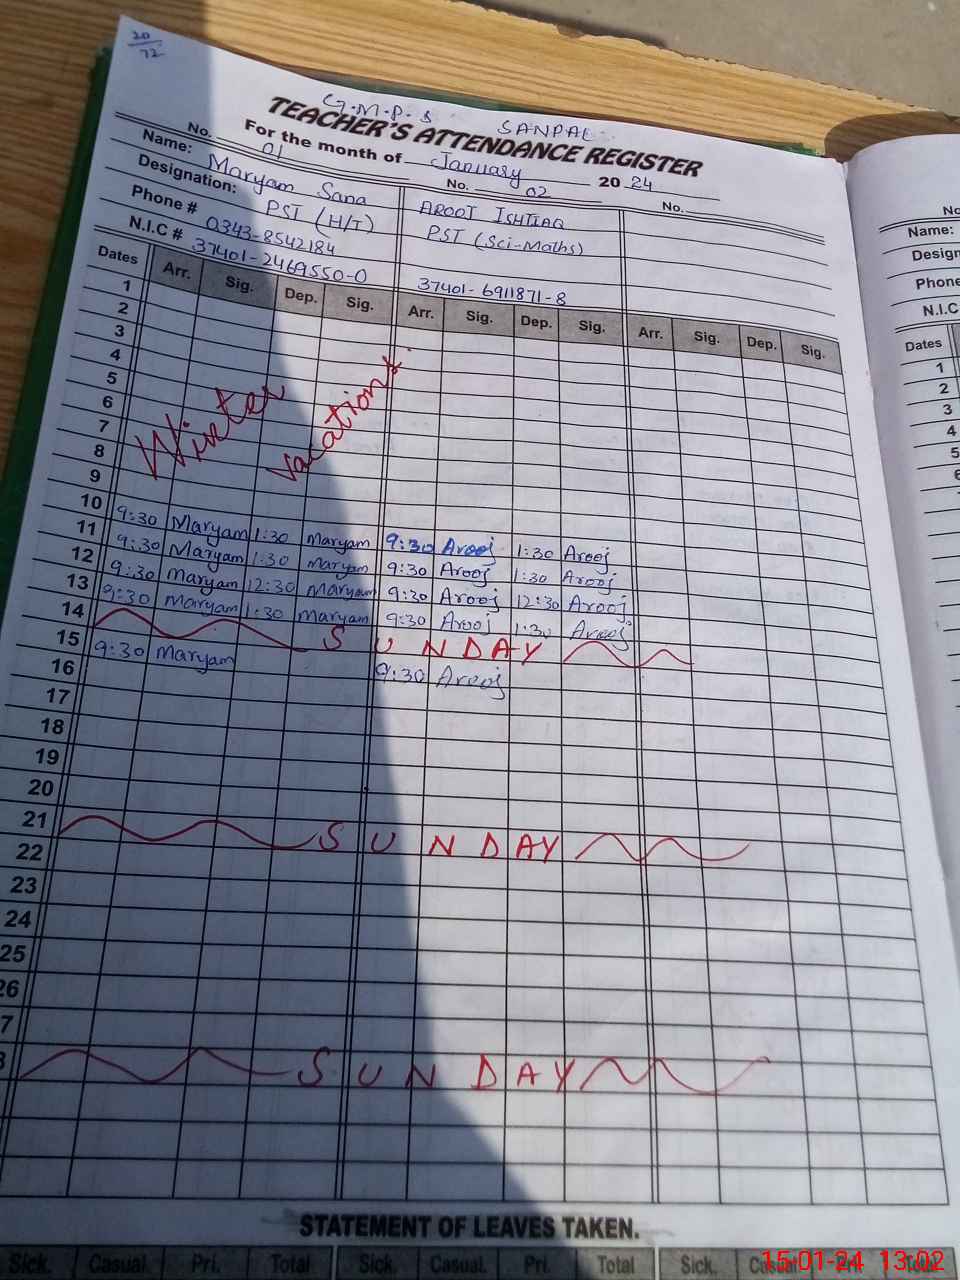 20/72
G.M.P.S SANPAL
TEACHER'S ATTENDANCE REGISTER
For the month of January 2024
No. 01 No. 02 No.
Name: Maryam Sana AROOJ ISHTIAQ
Designation: PST (H/T) PST (Sci-Maths)
Phone # 0343-8542184
N.I.C # 37401-2469550-0 37401-6911871-8
Dates Arr. Sig. Dep. Sig. Arr. Sig. Dep. Sig. Arr. Sig. Dep. Sig.
1
2
3
4
5
6
7
8
9
Winter vacations.
10 9:30 Maryam 1:30 Maryam 9:30 Arooj 1:30 Arooj
11 9:30 Maryam 1:30 Maryam 9:30 Arooj 1:30 Arooj
12 9:30 Maryam 12:30 Maryam 9:30 Arooj 12:30 Arooj
13 9:30 Maryam 1:30 Maryam 9:30 Arooj 1:30 Arooj
14 SUNDAY
15 9:30 Maryam 9:30 Arooj
16
17
18
19
20
21 SUNDAY
22
23
24
25
26
7
8 SUNDAY
STATEMENT OF LEAVES TAKEN.
Sick. Casual. Pri. Total Sick. Casual. Pri. Total Sick. Casual. Pri. Total
No
Name:
Design
Phone
N.I.C
Dates
1
2
3
4
5
6
15-01-24 13:02